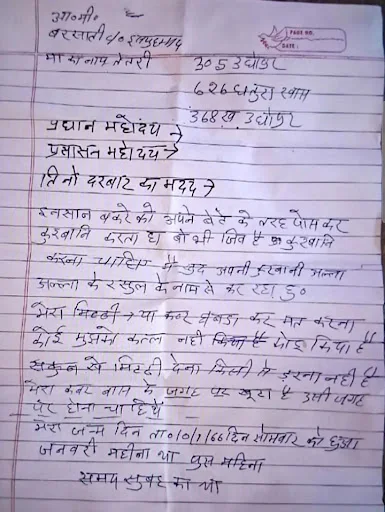 PAGE NO.
DATE:
आ०मी०
माँ का नाम
305
626 धतुरा
368 ख
प्रधान महोदय →
प्रसासन महोदय →
तिनो दरबार का मदद →
इनसान बकरे को अपने बेटे के तरह पोस कर
कुरबानि करता हा वो भी जिव है कुरबानि
करना चाहिए मै खुद अपनी कुरबानी अल्ला
अल्ला के रसुल के नाम से कर रहा हु०
मेरा मिट्टी → या कबर घबड़ा कर मत करना
कोई मुझको कत्ल नही किया है
सकुन से मिटटी देना किसी से डरना नही है
मेरा कबर बास के जगह पर खुटा है उसी जगह
पर होना चाहिये
मेरा जन्म दिन ता० 10/1/66 दिन सोमवार को हुआ
जनवरी महीना था पुस महिना
समय सुबह का था